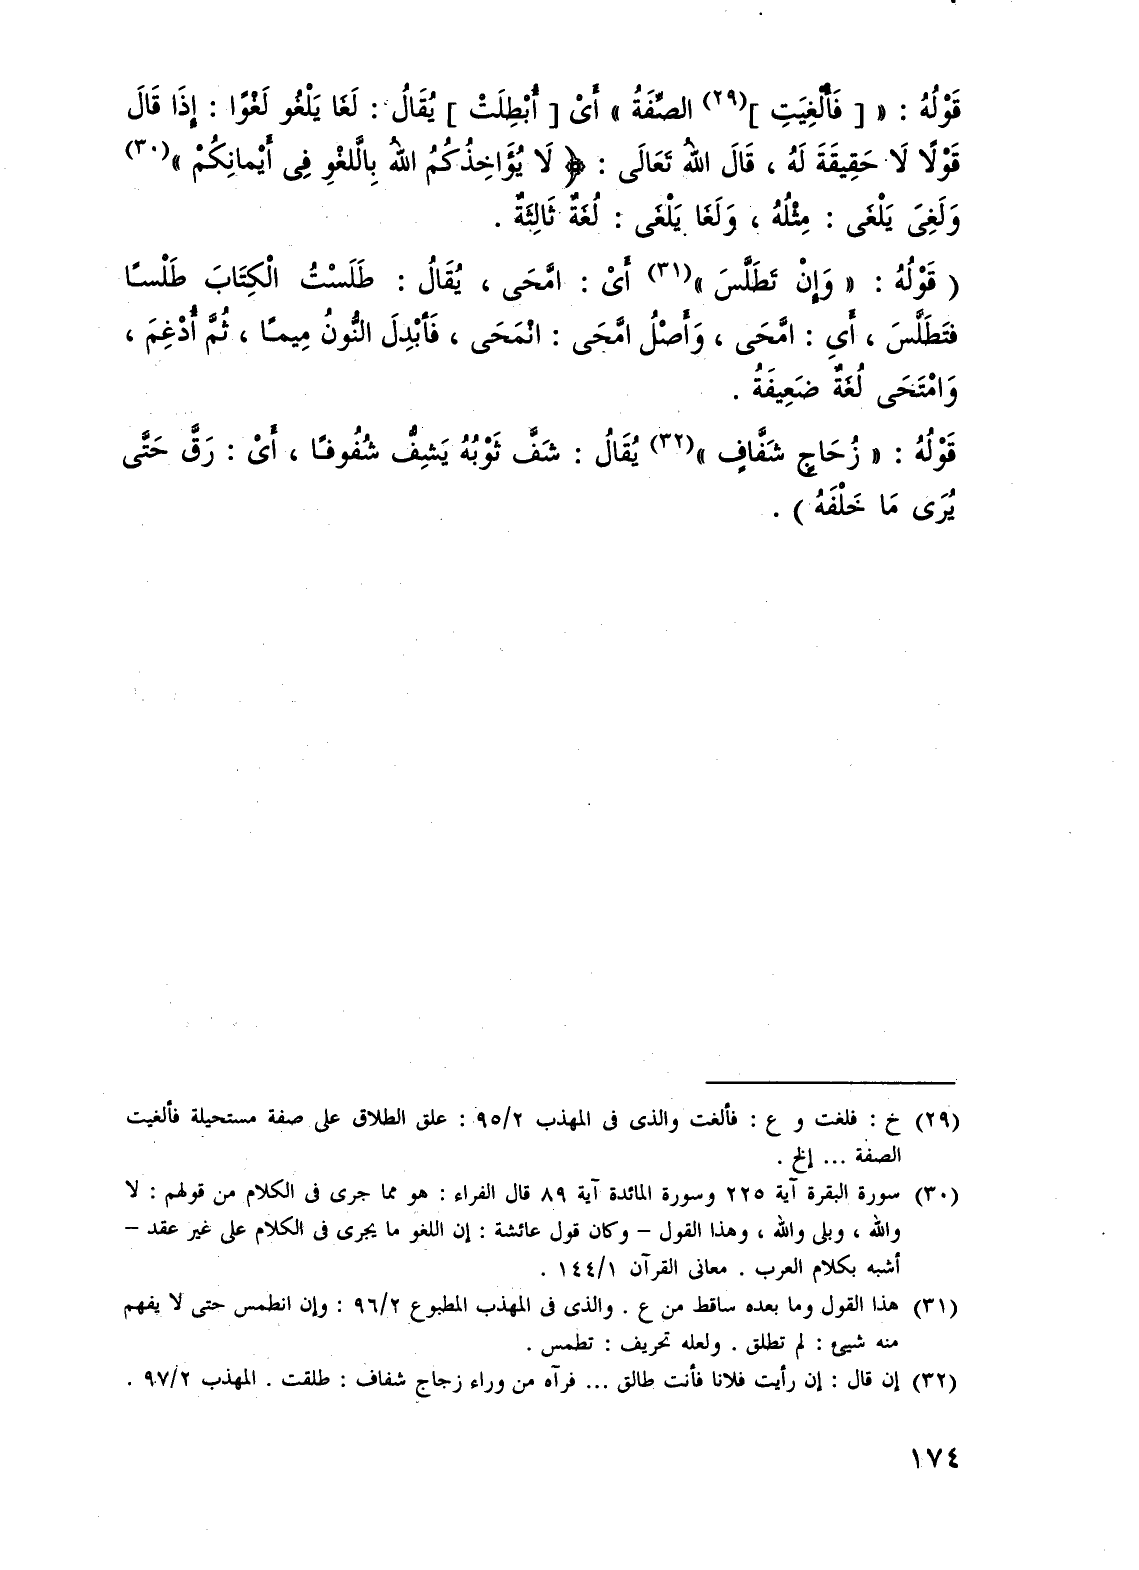 قَوْلُهُ : « [ فَأُلْغِيَتِ ](٢٩) الصِّفَةُ » أَىْ [ أُبْطِلَتْ ] يُقَالُ : لَغَا يَلْغُو لَغْوًا : إِذَا قَالَ
قَوْلًا لَا حَقِيقَةَ لَهُ ، قَالَ اللهُ تَعَالَى : ﴿ لَا يُؤَاخِذُكُمُ اللهُ بِالَّلغْوِ فِى أَيْمانِكُمْ »(٣٠)
وَلَغِىَ يَلْغَى : مِثْلُهُ ، وَلَغَا يَلْغَى : لُغَةٌ ثَالِثَةٌ .
( قَوْلُهُ : « وَإِنْ تَطَلَّسَ »(٣١) أَىْ : امَّحَى ، يُقَالُ : طَلَسْتُ الْكِتَابَ طَلْسًا
فَتَطَلَّسَ ، أَىِ : امَّحَى ، وَأَصْلُ امَّحَى : انْمَحَى ، فَأُبْدِلَ النُّونُ مِيمًا ، ثُمَّ أُدْغِمَ ،
وَامْتَحَى لُغَةٌ ضَعِيفَةُ .
قَوْلُهُ : « زُجَاجٍ شَفَّافٍ »(٣٢) يُقَالُ : شَفَّ ثَوْبُهُ يَشِفُّ شُفُوفًا ، أَىْ : رَقَّ حَتَّى
يُرَى مَا خَلْفَهُ ) .
(٢٩) خ : فلغت و ع : فألغت والذى فى المهذب ٩٥/٢ : علق الطلاق على صفة مستحيلة فألغيت
الصفة ... إلخ .
(٣٠) سورة البقرة آية ٢٢٥ وسورة المائدة آية ٨٩ قال الفراء : هو مما جرى فى الكلام من قولهم : لا
والله ، وبلى والله ، وهذا القول – وكان قول عائشة : إن اللغو ما يجرى فى الكلام على غير عقد –
أشبه بكلام العرب . معانى القرآن ١٤٤/١ .
(٣١) هذا القول وما بعده ساقط من ع . والذى فى المهذب المطبوع ٩٦/٢ : وإن انطمس حتى لا يفهم
منه شيئ : لم تطلق . ولعله تحريف : تطمس .
(٣٢) إن قال : إن رأيت فلانا فأنت طالق ... فرآه من وراء زجاج شفاف : طلقت . المهذب ٩٧/٢ .
١٧٤